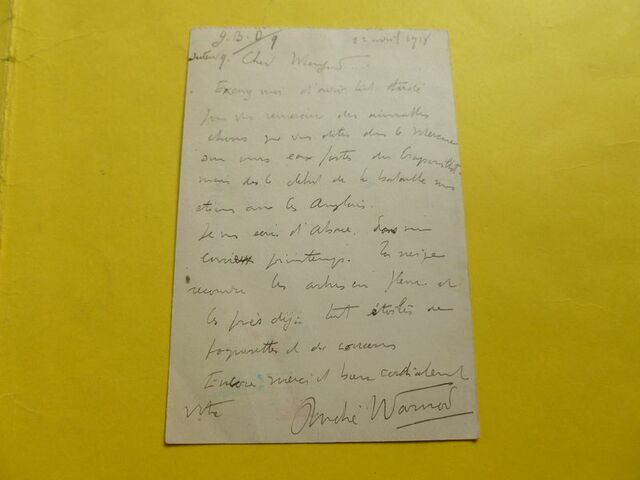 J.B.D 9 22 avril 1918
Cher
Excusez moi d'avoir tant tardé
vous remercier des aimables
choses que vous dites dans le Mercure
sur mes eaux fortes du Crapouillot.
mais dès le début de la bataille nous
étions avec les Anglais.
Je vous écris d'Alsace. Dans un
curieux printemps. La neige
recouvre les arbres en fleurs et
les prés déjà tout étoilés de
paquerettes et de coucous
Encore merci et bien cordialement
votre André Warnod